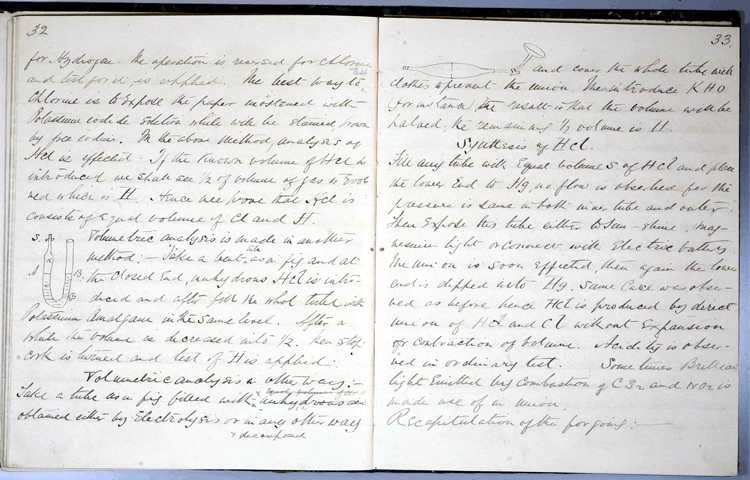 32
for Hydrogen. The operation is reversed for Chlorine
and test for it is applied. The best way to test
Chlorine is to Expose the paper moistened with
Potassium iodide solution while will be stained brown
by free iodine. In the above method, analysis of
HCl is effected. If the known volume of HCl is
introduced we shall see 1/2 of volume of gas is
which is H. Hence we prove that HCl is
consists of Equal volume of Cl and H.
Volumetric analysis is made in another
method:— Take a bent, as in fig and at
the closed End, anhydrous HCl is intro-
duced and after fill the whol tube with
Potassium Amalgam in the same level. After a
while the volume is decreased into 1/2. then stop
cork is turned and test of H is applied.
S.
A
B.
B
Volumetric analysis in other way:—
Take a tube as in fig filled with anhydrous
obtained either by Electrolysis or in any other way
x decomposed
33
and cover the whole tube with
clothes to prevent the union. Then introduce KHO
(for instance) the result is that the volume will be
halved, the remaining 1/2 volume is H.
Synthesis of HCl.
Fill any tube with Equal volumes of HCl and place
the lower End to Hg, no flow is observed for the
pressure is same in both inner tube and outer.
Then Expose this tube either to Sun-shine, mag-
nesium light or connect with Electric battery
The union is soon effected, then again the lower
end is dipped into Hg. Same case was obser-
ved as before hence HCl is produced by direct
union of H and Cl without Expansion
or contraction of volume. Acidity is obser-
ved in ordinary test. Sometimes Brilliant
light Emitted by combustion of CS2 and NO2 is
made use of in union.
Recapitulation of the forgoing:—